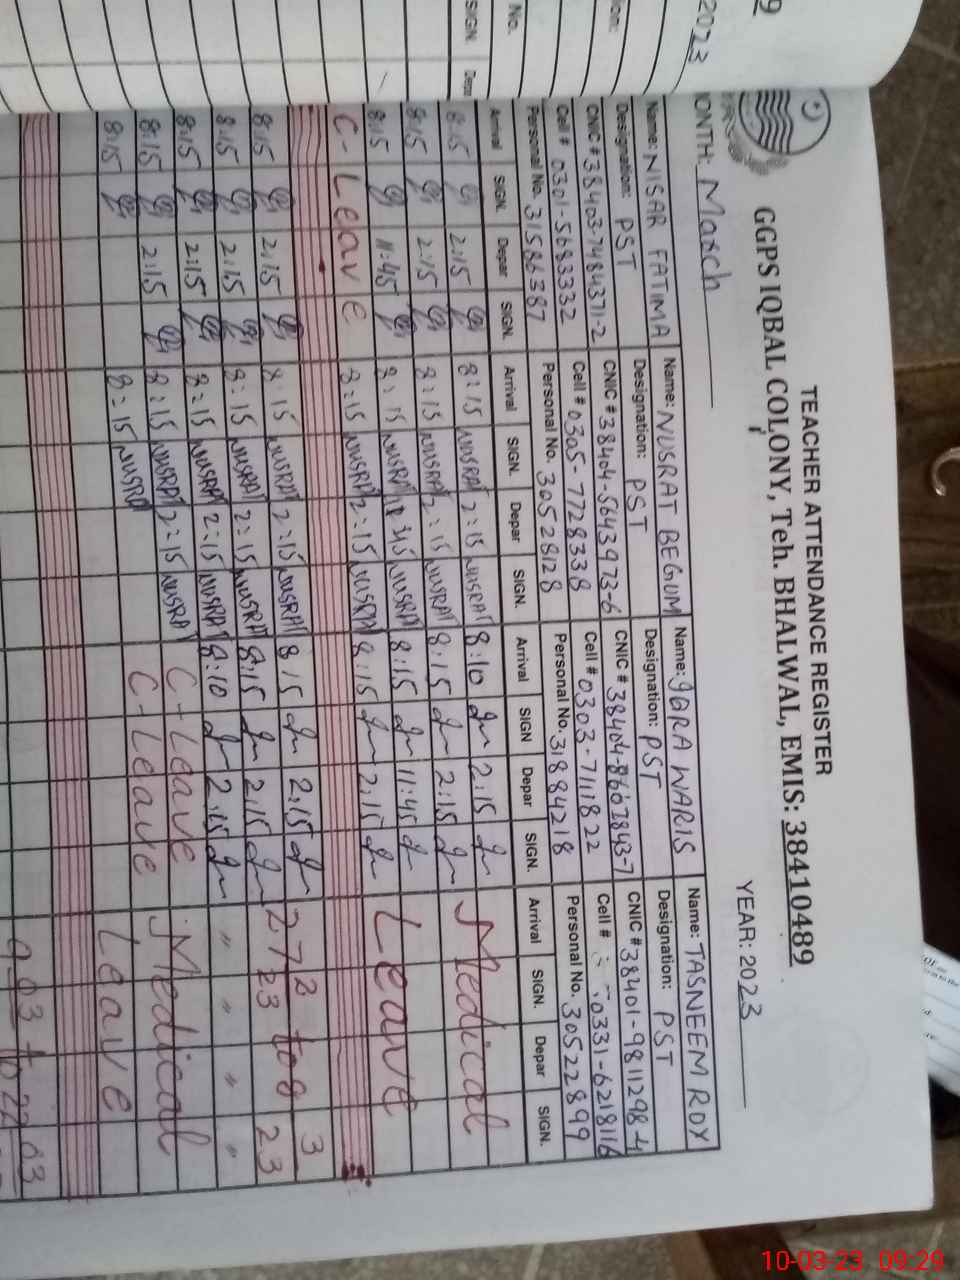 TEACHER ATTENDANCE REGISTER
GGPS IQBAL COLONY, Teh. BHALWAL, EMIS: 38410489
MONTH: March YEAR: 2023
Name: NISAR FATIMA Name: NUSRAT BEGUM Name: IQRA WARIS Name: TASNEEM ROX
Designation: PST Designation: PST Designation: PST Designation: PST
CNIC # 38403-7484371-2 CNIC # 38404-5643973-6 CNIC # 38404-8667843-7 CNIC # 38401-9811298-4
Cell # 0301-5683332 Cell # 0305-7728338 Cell # 0303-7111822 Cell # 0331-6218116
Personal No. 31586387 Personal No. 30528128 Personal No. 31884218 Personal No. 30522899
Arrival SIGN. Depar SIGN. Arrival SIGN. Depar SIGN. Arrival SIGN Depar SIGN. Arrival SIGN. Depar SIGN.
8:15 2:15 8:15 NUSRAT 2:15 NUSRAT 8:10 2:15 Medical
8:15 2:15 8:15 NUSRAT 2:15 NUSRAT 8:15 2:15
8:15 11:45 8:15 NUSRAT NUSRAT 8:15 11:45 Leave
C-Leave 8:15 NUSRAT 2:15 NUSRAT 8:15 2:15
8:15 2:15 8:15 NUSRAT 2:15 NUSRAT 8 15 2:15 27 2 23 to 8 3 23
8:15 2:15 8:15 NUSRAT 2:15 NUSRAT 8:15 2:15
8:15 2:15 8:15 NUSRAT 2:15 NUSRAT 8:10 2:15 " " " "
8:15 2:15 8:15 NUSRAT 2:15 NUSRAT C-Leave Medical
8:15 8:15 NUSRAT C-Leave Leave
9.03 to 22.03
No.
SIGN.
2023
10-03-23 09:29